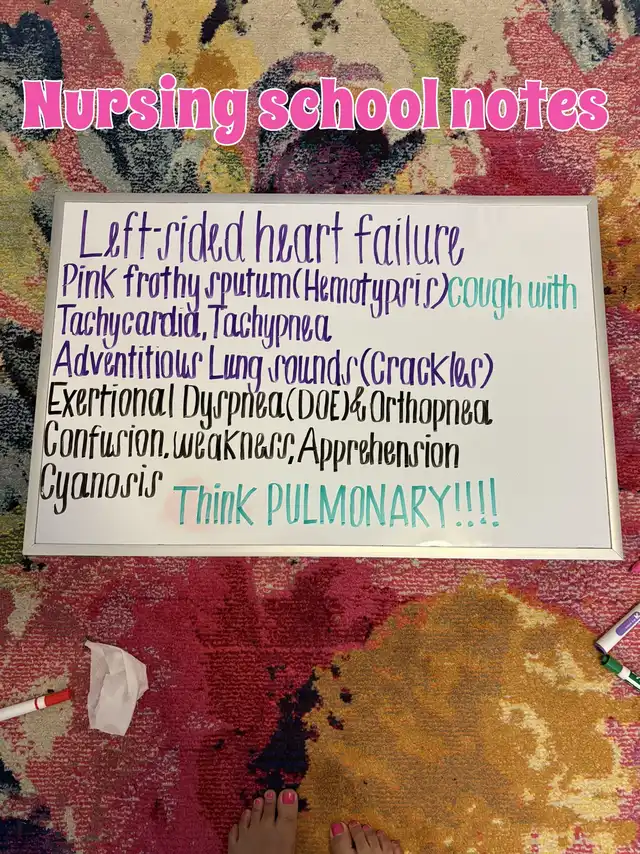 Nursing school notes
Left-sided heart failure
Pink frothy sputum(Hemotypsis)cough with
Tachycardia, Tachypnea
Adventitious Lung sounds(Crackles)
Exertional Dyspnea(DOE)& Orthopnea
Confusion, weakness, Apprehension
Cyanosis Think PULMONARY!!!!